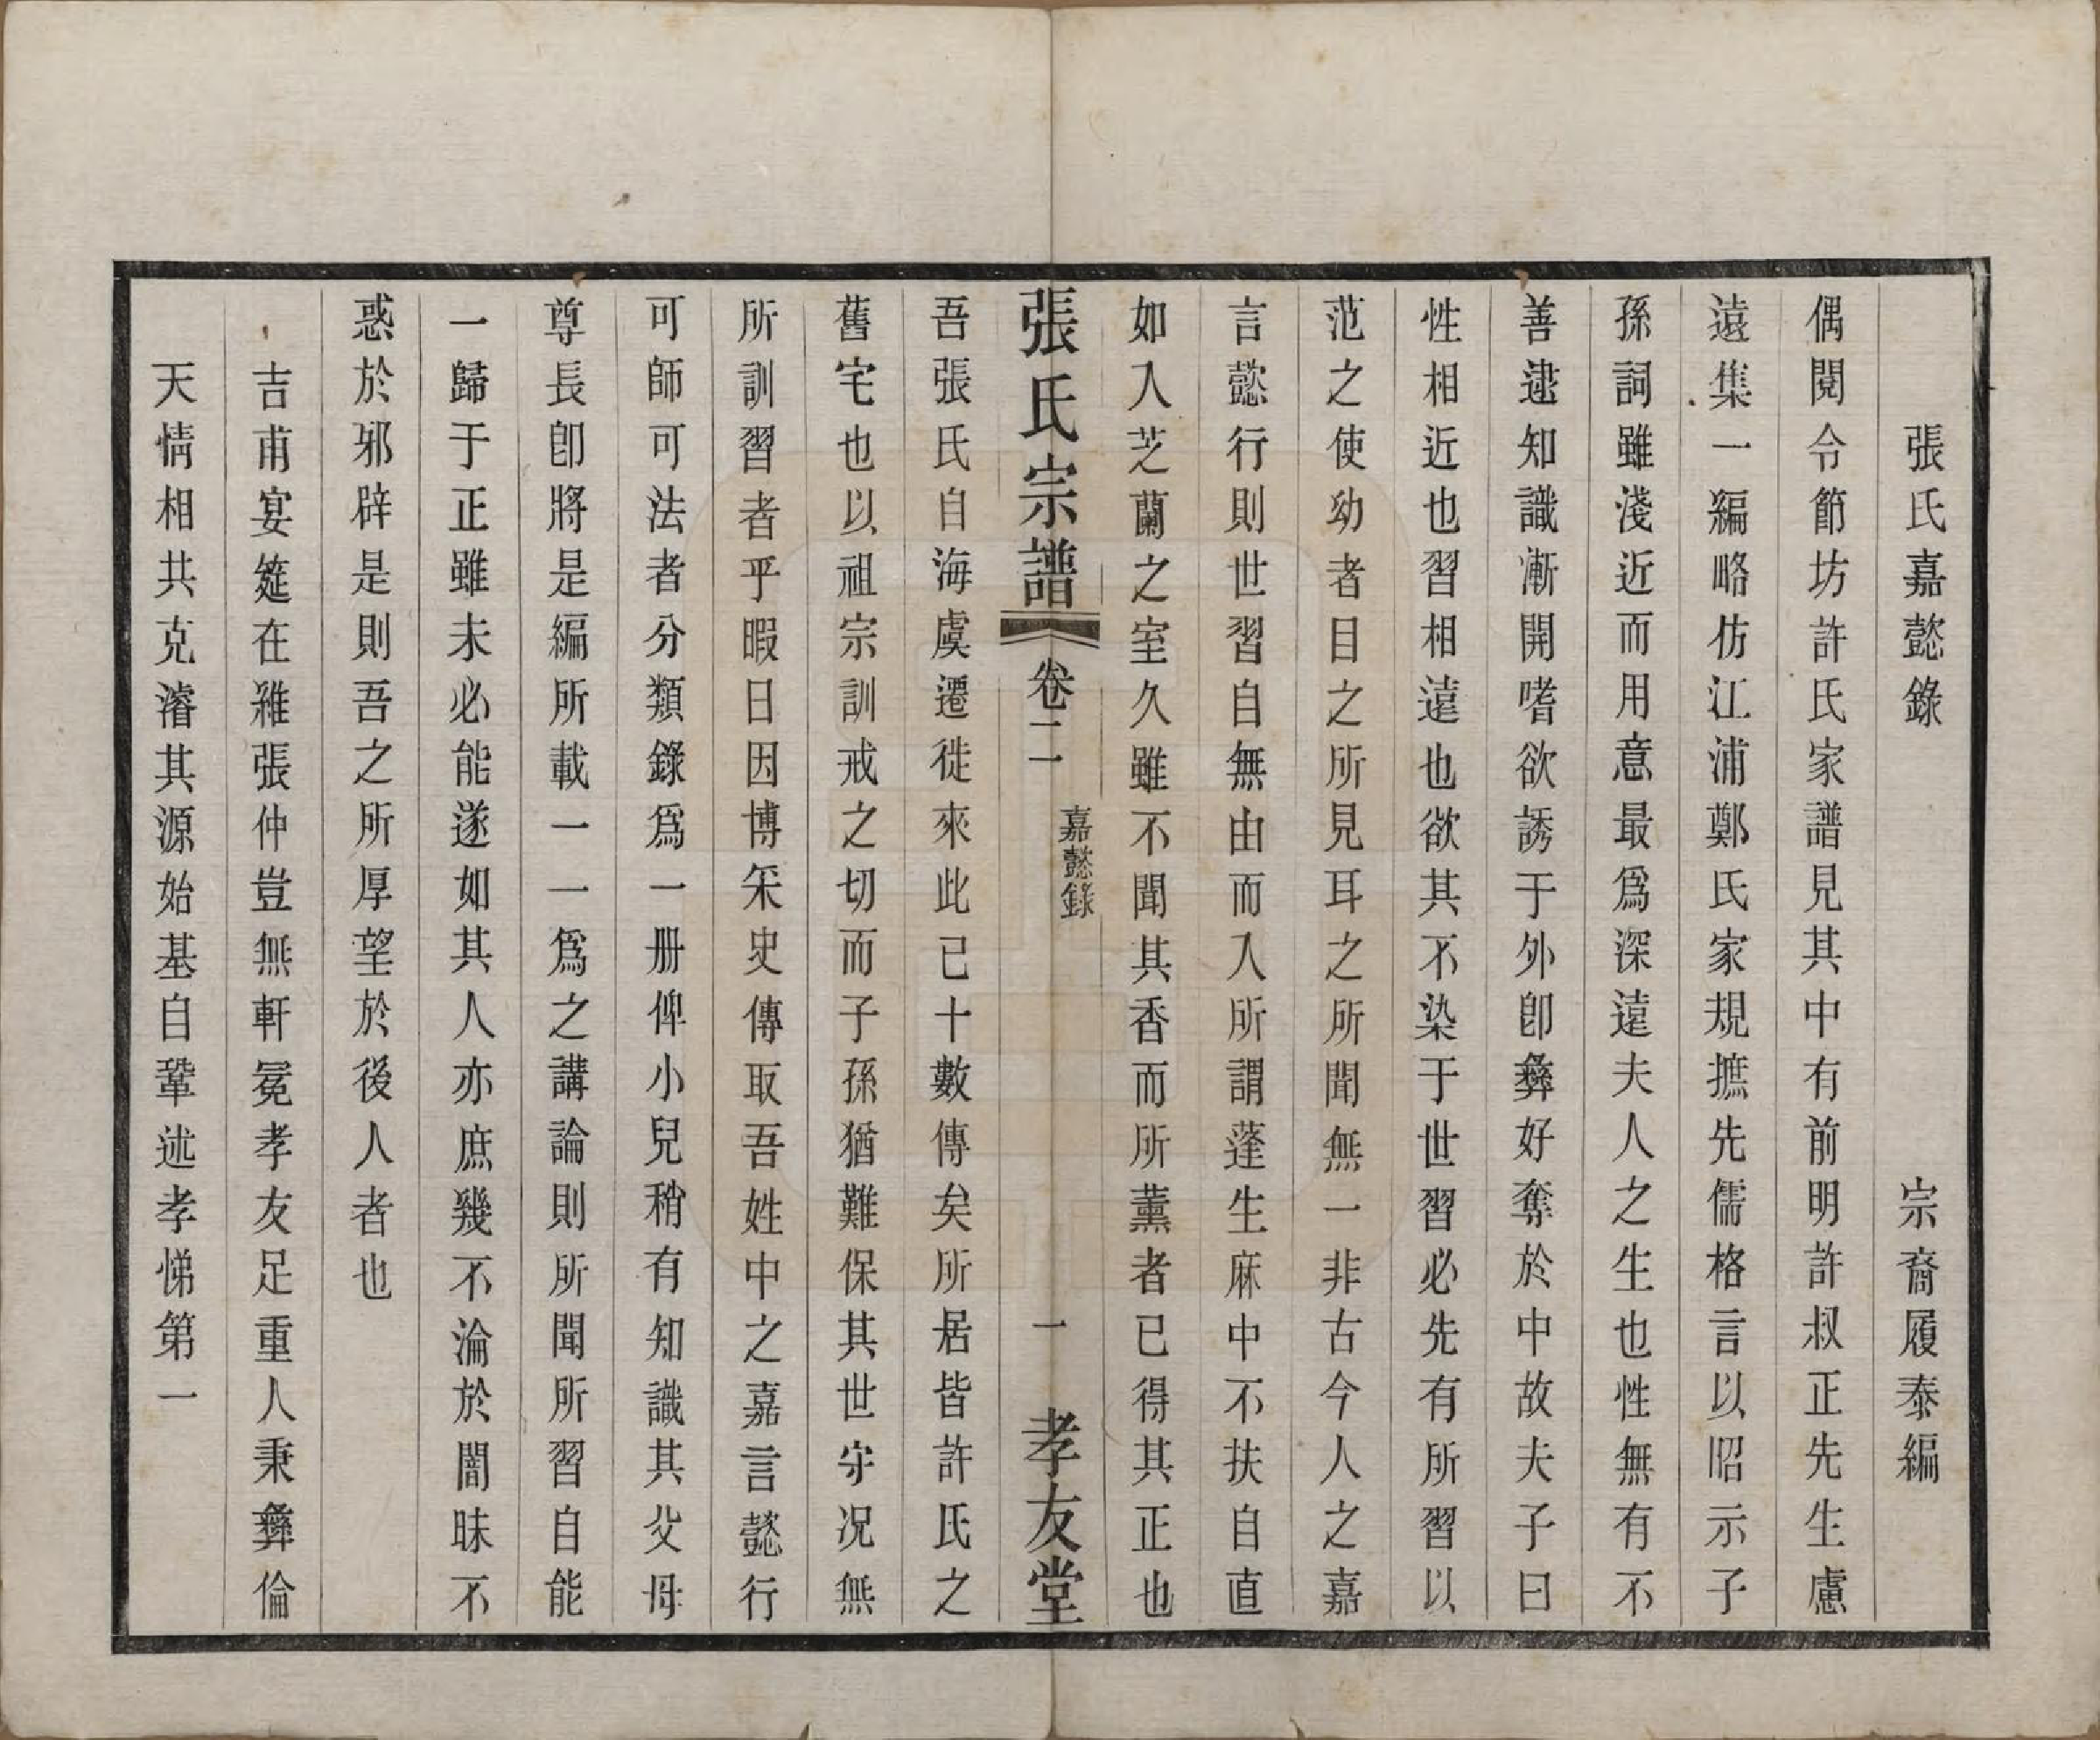 張氏嘉懿錄　宗裔履泰編
偶閱令節坊許氏家譜見其中有前明許叔正先生慮
遠集一編略仿江浦鄭氏家規摭先儒格言以昭示子
孫詞雖淺近而用意最爲深遠夫人之生也性無有不
善逮知識漸開嗜欲誘于外卽彝好奪於中故夫子曰
性相近也習相遠也欲其不染于世習必先有所習以
范之使幼者目之所見耳之所聞無一非古今人之嘉
言懿行則世習自無由而入所謂蓬生麻中不扶自直
如入芝蘭之室久雖不聞其香而所薰者已得其正也
張氏宗譜　卷二　嘉懿錄　一　孝友堂
吾張氏自海虞遷徙來此已十數傳矣所居皆許氏之
舊宅也以祖宗訓戒之切而子孫猶難保其世守况無
所訓習者乎暇日因博采史傳取吾姓中之嘉言懿行
可師可法者分類錄爲一册俾小兒稍有知識其父母
尊長卽將是編所載一一爲之講論則所聞所習自能
一歸于正雖未必能遂如其人亦庶幾不淪於闇昧不
惑於邪辟是則吾之所厚望於後人者也
吉甫宴筵在雅張仲豈無軒冕孝友足重人秉彝倫
天情相共克濬其源始基自鞏述孝悌第一